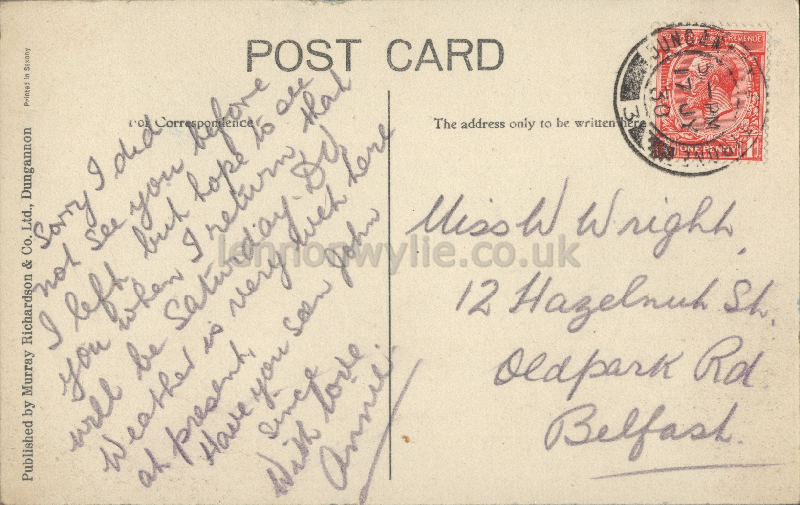 POST CARD
For Correspondence
The address only to be written here
Printed in Saxony
Published by Murray Richardson & Co. Ltd., Dungannon
Sorry I did
not see you before
I left but hope to see
you when I return that
will be Saturday. D.V.
Weather is very wet here
at present.
Have you seen John
since
With love
Annie.
Miss W Wright,
12 Hazelnut St.
Oldpark Rd
Belfast.
DUNGANNON
-PM
17 JY
30
3
ONE PENNY
lennonwylie.co.uk